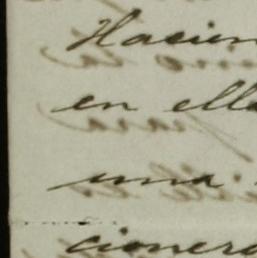 Hacien
en ella
una
cionera